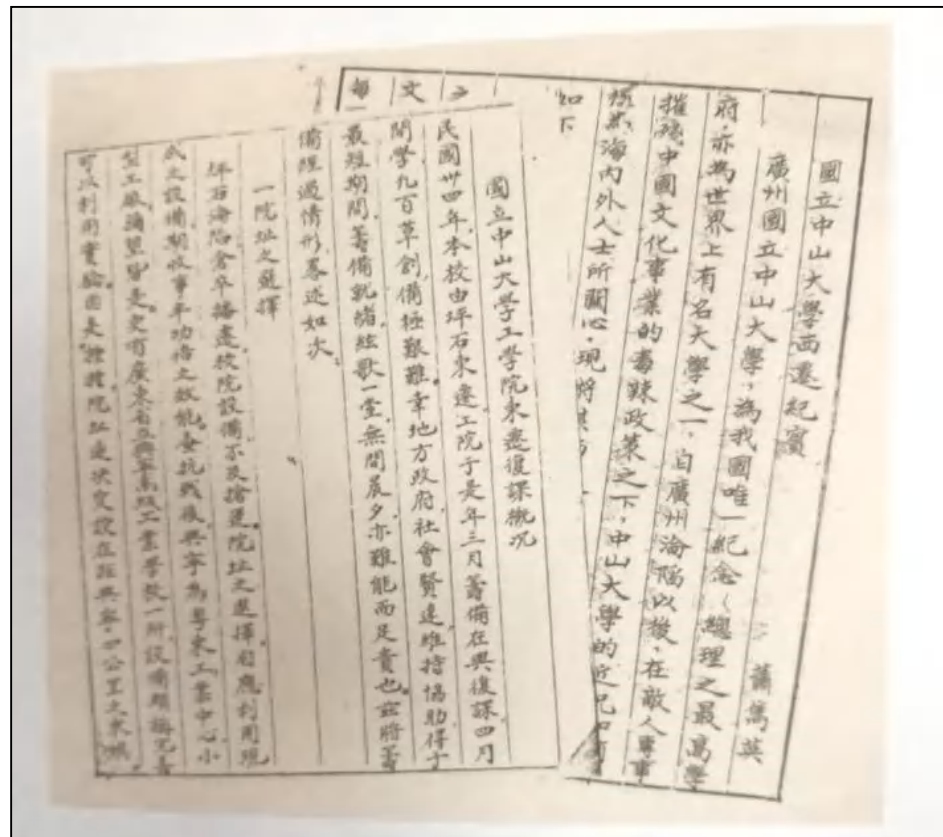 國立中山大學西遷紀實
蕭篤英
廣州國立中山大學，為我國唯一紀念 總理之最高學
府，亦為世界上有名大學之一，自廣州淪陷以後，在敵人專事
摧殘中國文化事業的毒辣政策之下，中山大學的近況
為海內外人士所關心，現將其
如下
文
國立中山大学工学院東遷復課概況
民國卅四年，本校由坪石東遷，工院于是年三月籌備在興復課，四月
開學，九百草創，備極艱難，幸地方政府社會賢達維持協助得于
最短期間，籌備就緒，絃歌一堂，無間晨夕，亦難能而足貴也。茲將籌
備經過情形，畧述如次：
一院址之選擇
坪石淪陷，倉卒播遷，校院設備不及搶運，院址之選擇，自應利用現
成之設備，期收事半功倍之效能，查抗戰後，興寧為粤東工業中心，小
型工廠，彌望皆是，更有廣東省立興寧高級工業學校一所，設備頗稱完善
可以利用實驗，因是種種，院址遂決定設在距興寧，四公里之東